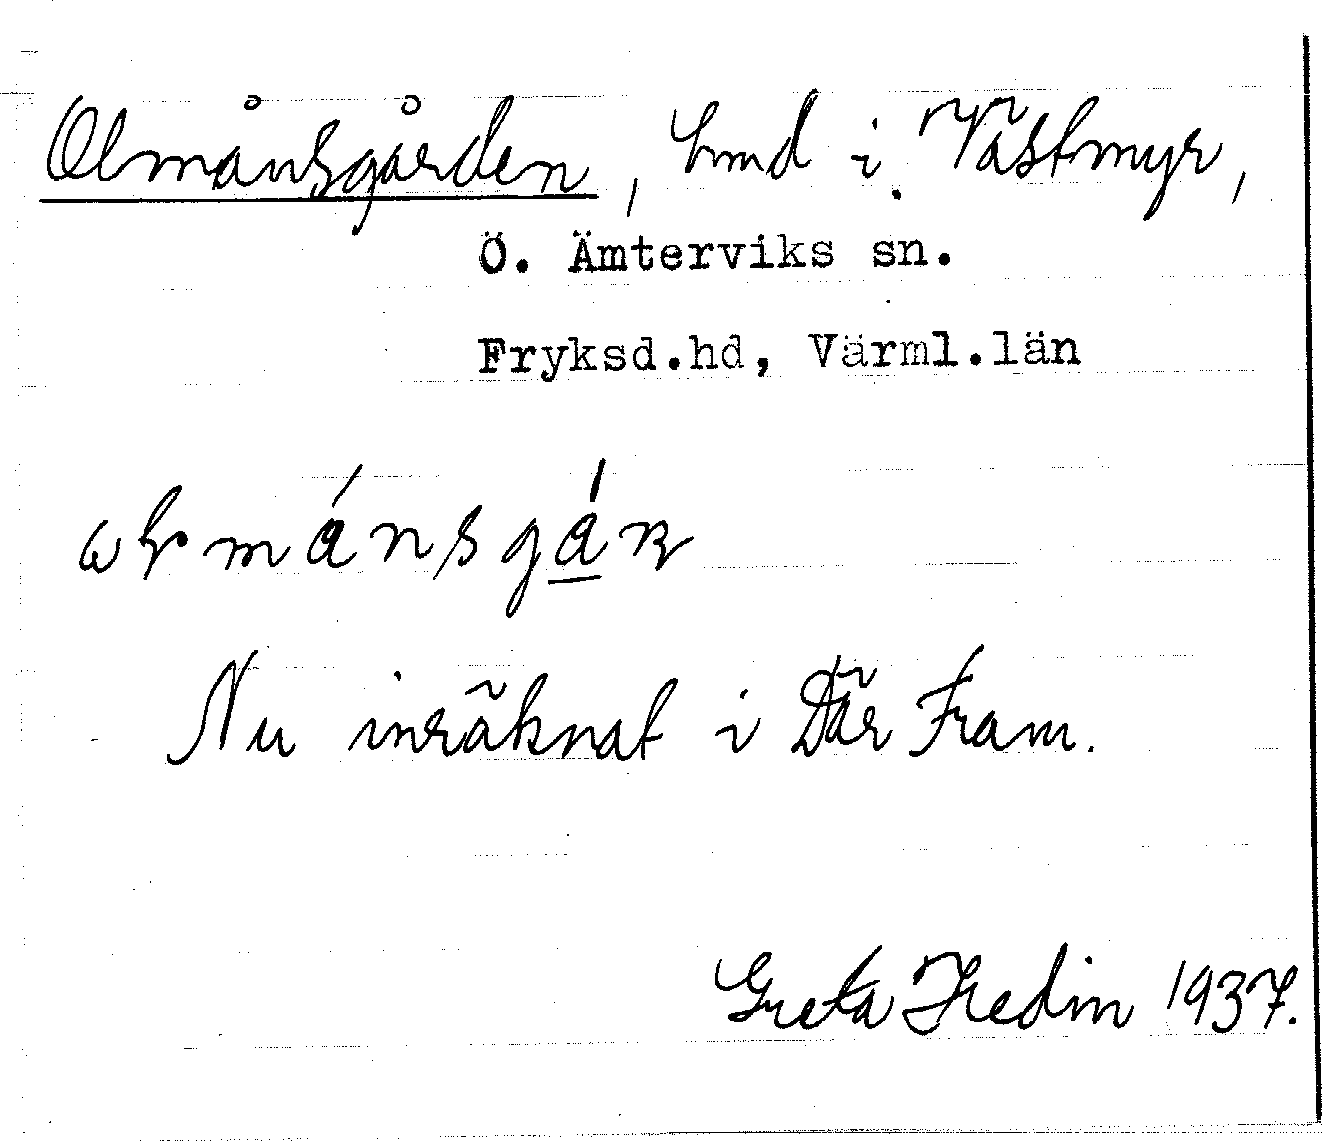 Olmånsgården, hmd i Västmyr,
Ö. Ämterviks sn.
Fryksd.hd, Värml.län
Nu inräknat i Där Fram.
Greta Hedin 1937.